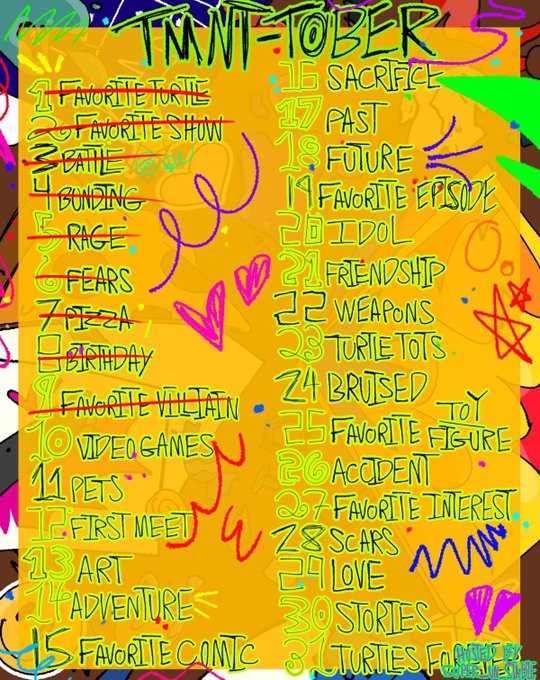 TMNT-TOBER
1 FAVORITE TURTLE
2 FAVORITE SHOW
3 BATTLE
4 BONDING
5 RAGE
6 FEARS
7 PIZZA
8 BIRTHDAY
9 FAVORITE VILLAIN
10 VIDEO GAMES
11 PETS
12 FIRST MEET
13 ART
14 ADVENTURE
15 FAVORITE COMIC
16 SACRIFICE
17 PAST
18 FUTURE
19 FAVORITE EPISODE
20 IDOL
21 FRIENDSHIP
22 WEAPONS
23 TURTLE TOTS
24 BRUISED
25 FAVORITE TOY FIGURE
26 ACCIDENT
27 FAVORITE INTEREST
28 SCARS
29 LOVE
30 STORIES
31 TURTLES
HOSTED BY